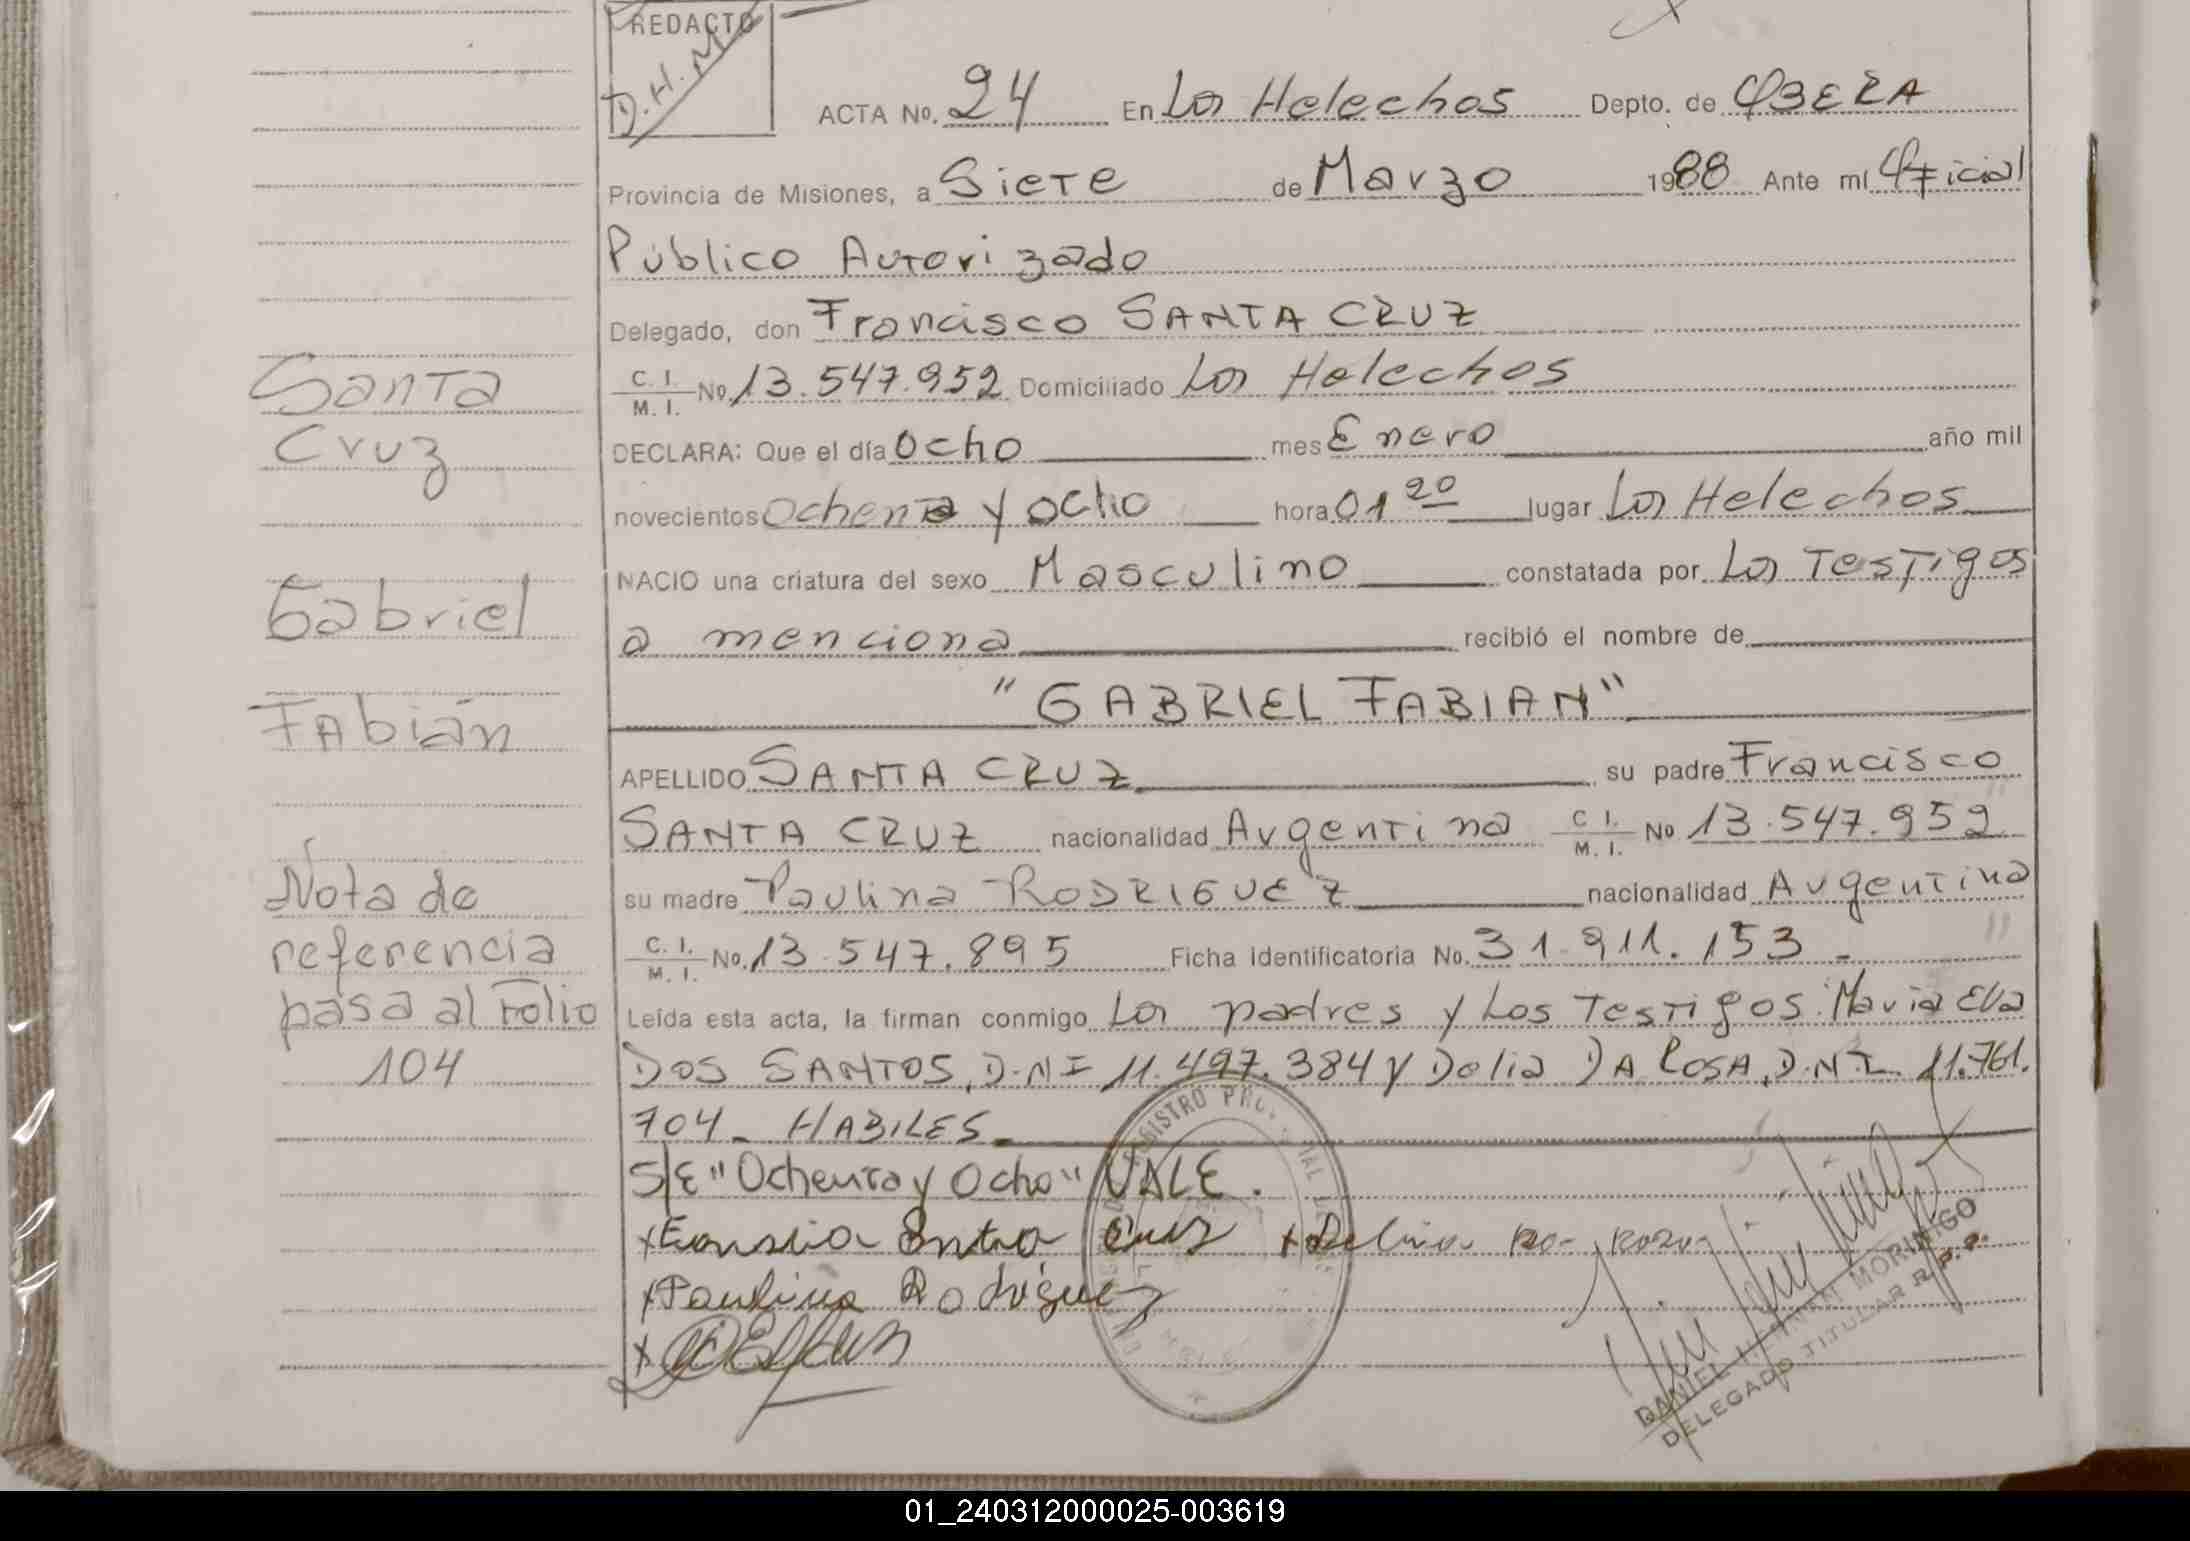 REDACTO
D.H.M
ACTA No. 24 En Los Helechos Depto. de OBERA
Provincia de Misiones, a Siete de Marzo 1988 Ante mí Oficial
Público Autorizado
Delegado, don Francisco SANTA CRUZ
C. I. / M. I. No. 13.547.952 Domiciliado Los Helechos
DECLARA: Que el día Ocho mes Enero año mil
novecientos Ochenta y Ocho hora 01 20 lugar Los Helechos
NACIO una criatura del sexo Masculino constatada por Los Testigos
a menciona recibió el nombre de
"GABRIEL FABIAN"
APELLIDO SANTA CRUZ su padre Francisco
SANTA CRUZ nacionalidad Argentina C. I. / M. I. No 13.547.952
su madre Paulina RODRIGUEZ nacionalidad Argentina
C. I. / M. I. No. 13.547.895 Ficha Identificatoria No. 31.911.153 -
Leída esta acta, la firman conmigo Los padres y Los Testigos: Maria Eva
DOS SANTOS, D.N.I 11.497.384 y Delia DA ROSA, D.N.I. 11.761.
704 - HABILES
S/E "Ochenta y Ocho" VALE.
Santa
Cruz
Gabriel
Fabián
Nota de
referencia
pasa al Folio
104
x Santa Cruz
x Paulina Rodriguez
REGISTRO
DANIEL MORINIGO
DELEGADO TITULAR R.P.P.
01_240312000025-003619